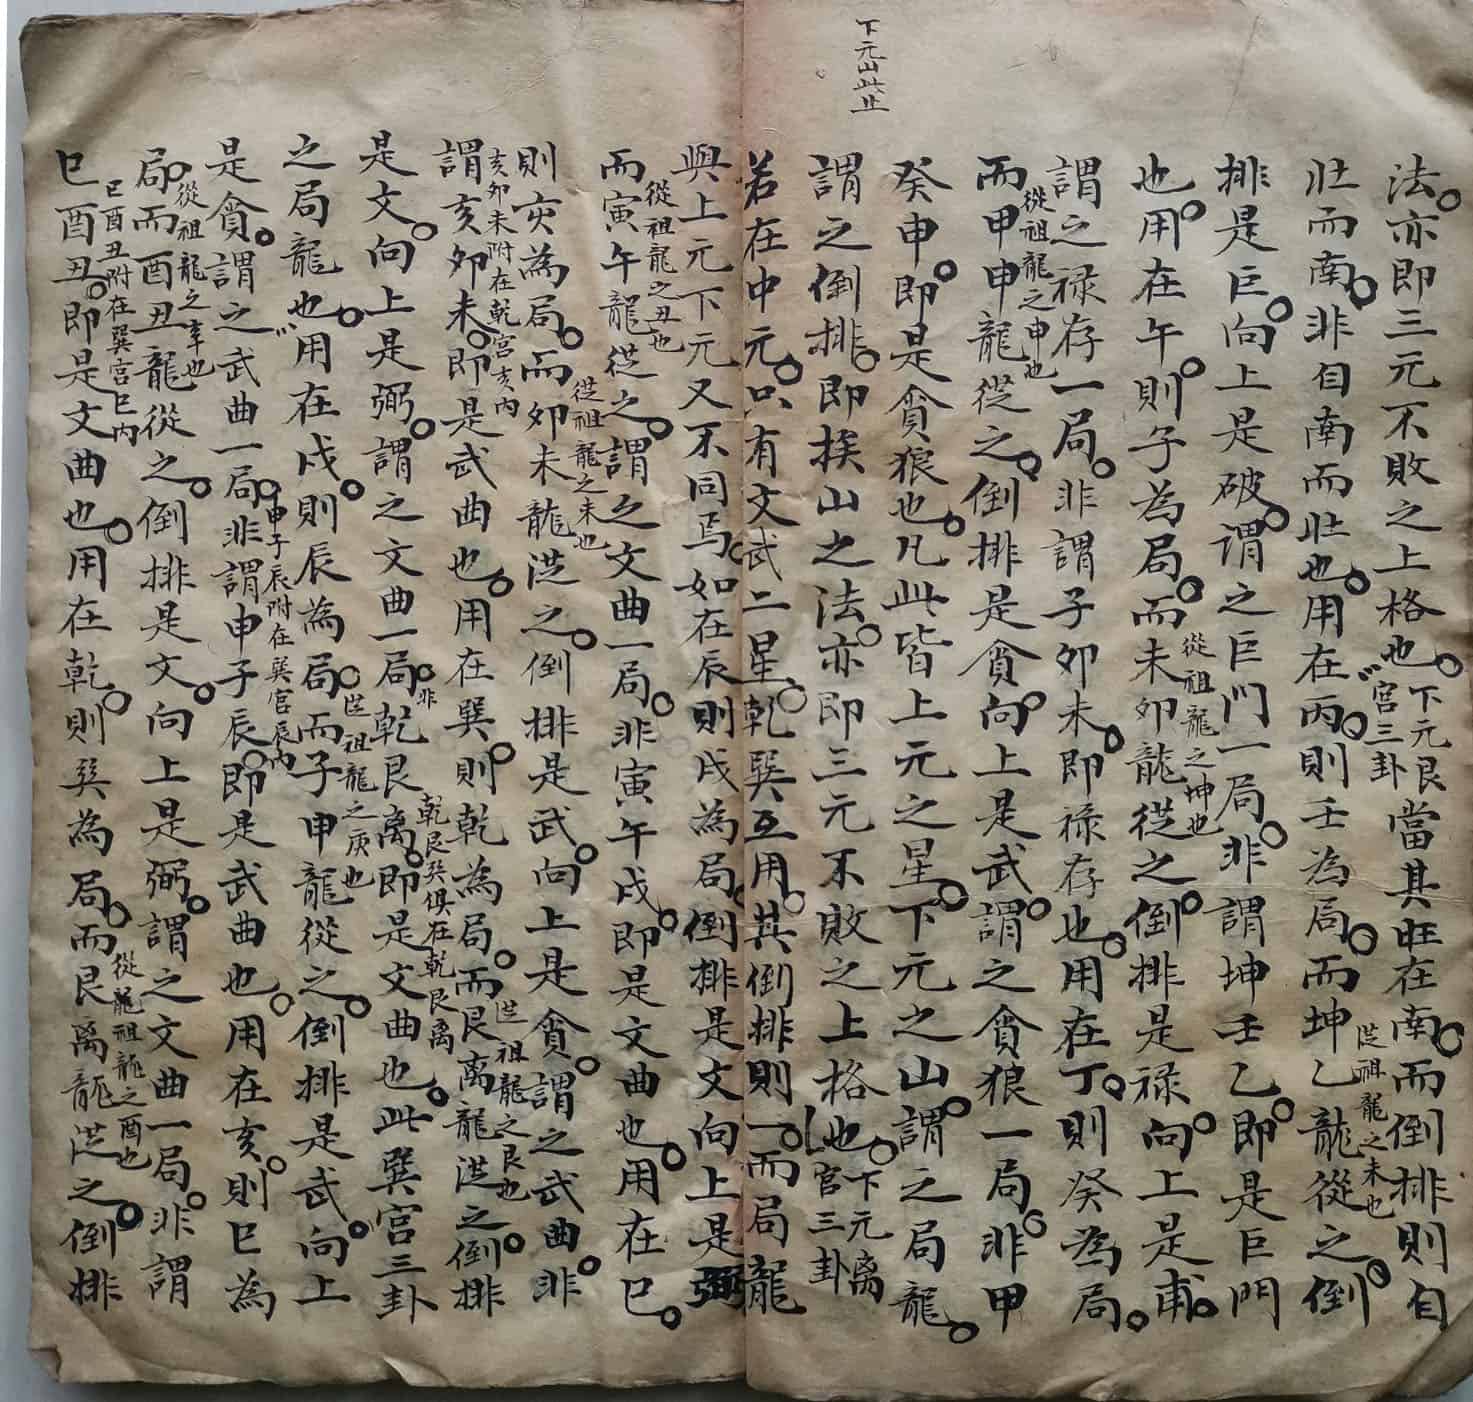 下元山此止
法亦即三元不敗之上格也下元艮宮三卦當其旺在南而倒排則自
壯而南非自南而壯也用在丙則壬為局而坤乙龍從之倒
從祖龍之未也
排是巨向上是破谓之巨門一局非謂坤壬乙即是巨門
也用在午則子為局而未卯龍從之倒排是祿向上是甫
從祖龍之坤也
謂之祿存一局非謂子卯未即祿存也用在丁則癸為局
而甲申龍從之倒排是貪向上是武謂之貪狼一局非甲
從祖龍之申也
癸申即是貪狼也凡此皆上元之星下元之山謂之局龍
謂之倒排即挨山之法亦即三元不敗之上格也下元离宮三卦
若在中元只有文武二星乾巽互用其倒排則一而局龍
與上元下元又不同焉如在辰則戌為局倒排是文向上是弼
而寅午龍從之謂之文曲一局非寅午戌即是文曲也用在巳
從祖龍之丑也
則亥為局而卯未龍從之倒排是武向上是貪謂之武曲非
從祖龍之未也
亥卯未附在乾宮亥內
謂亥卯未即是武曲也用在巽則乾為局而艮离龍從之倒排
從祖龍之艮也
是文向上是弼謂之文曲一局非乾艮离即是文曲也此巽宮三卦
乾艮巽俱在乾艮离
之局龍也用在戌則辰為局而子申龍從之倒排是武向上
從祖龍之庚也
是貪謂之武曲一局非謂申子辰即是武曲也用在亥則巳為
申子辰附在巽宮辰內
局而酉丑龍從之倒排是文向上是弼謂之文曲一局非謂
從祖龍之辛也
巳酉丑附在巽宮巳內
巳酉丑即是文曲也用在乾則巽為局而艮离龍從之倒排
從龍祖龍之酉也